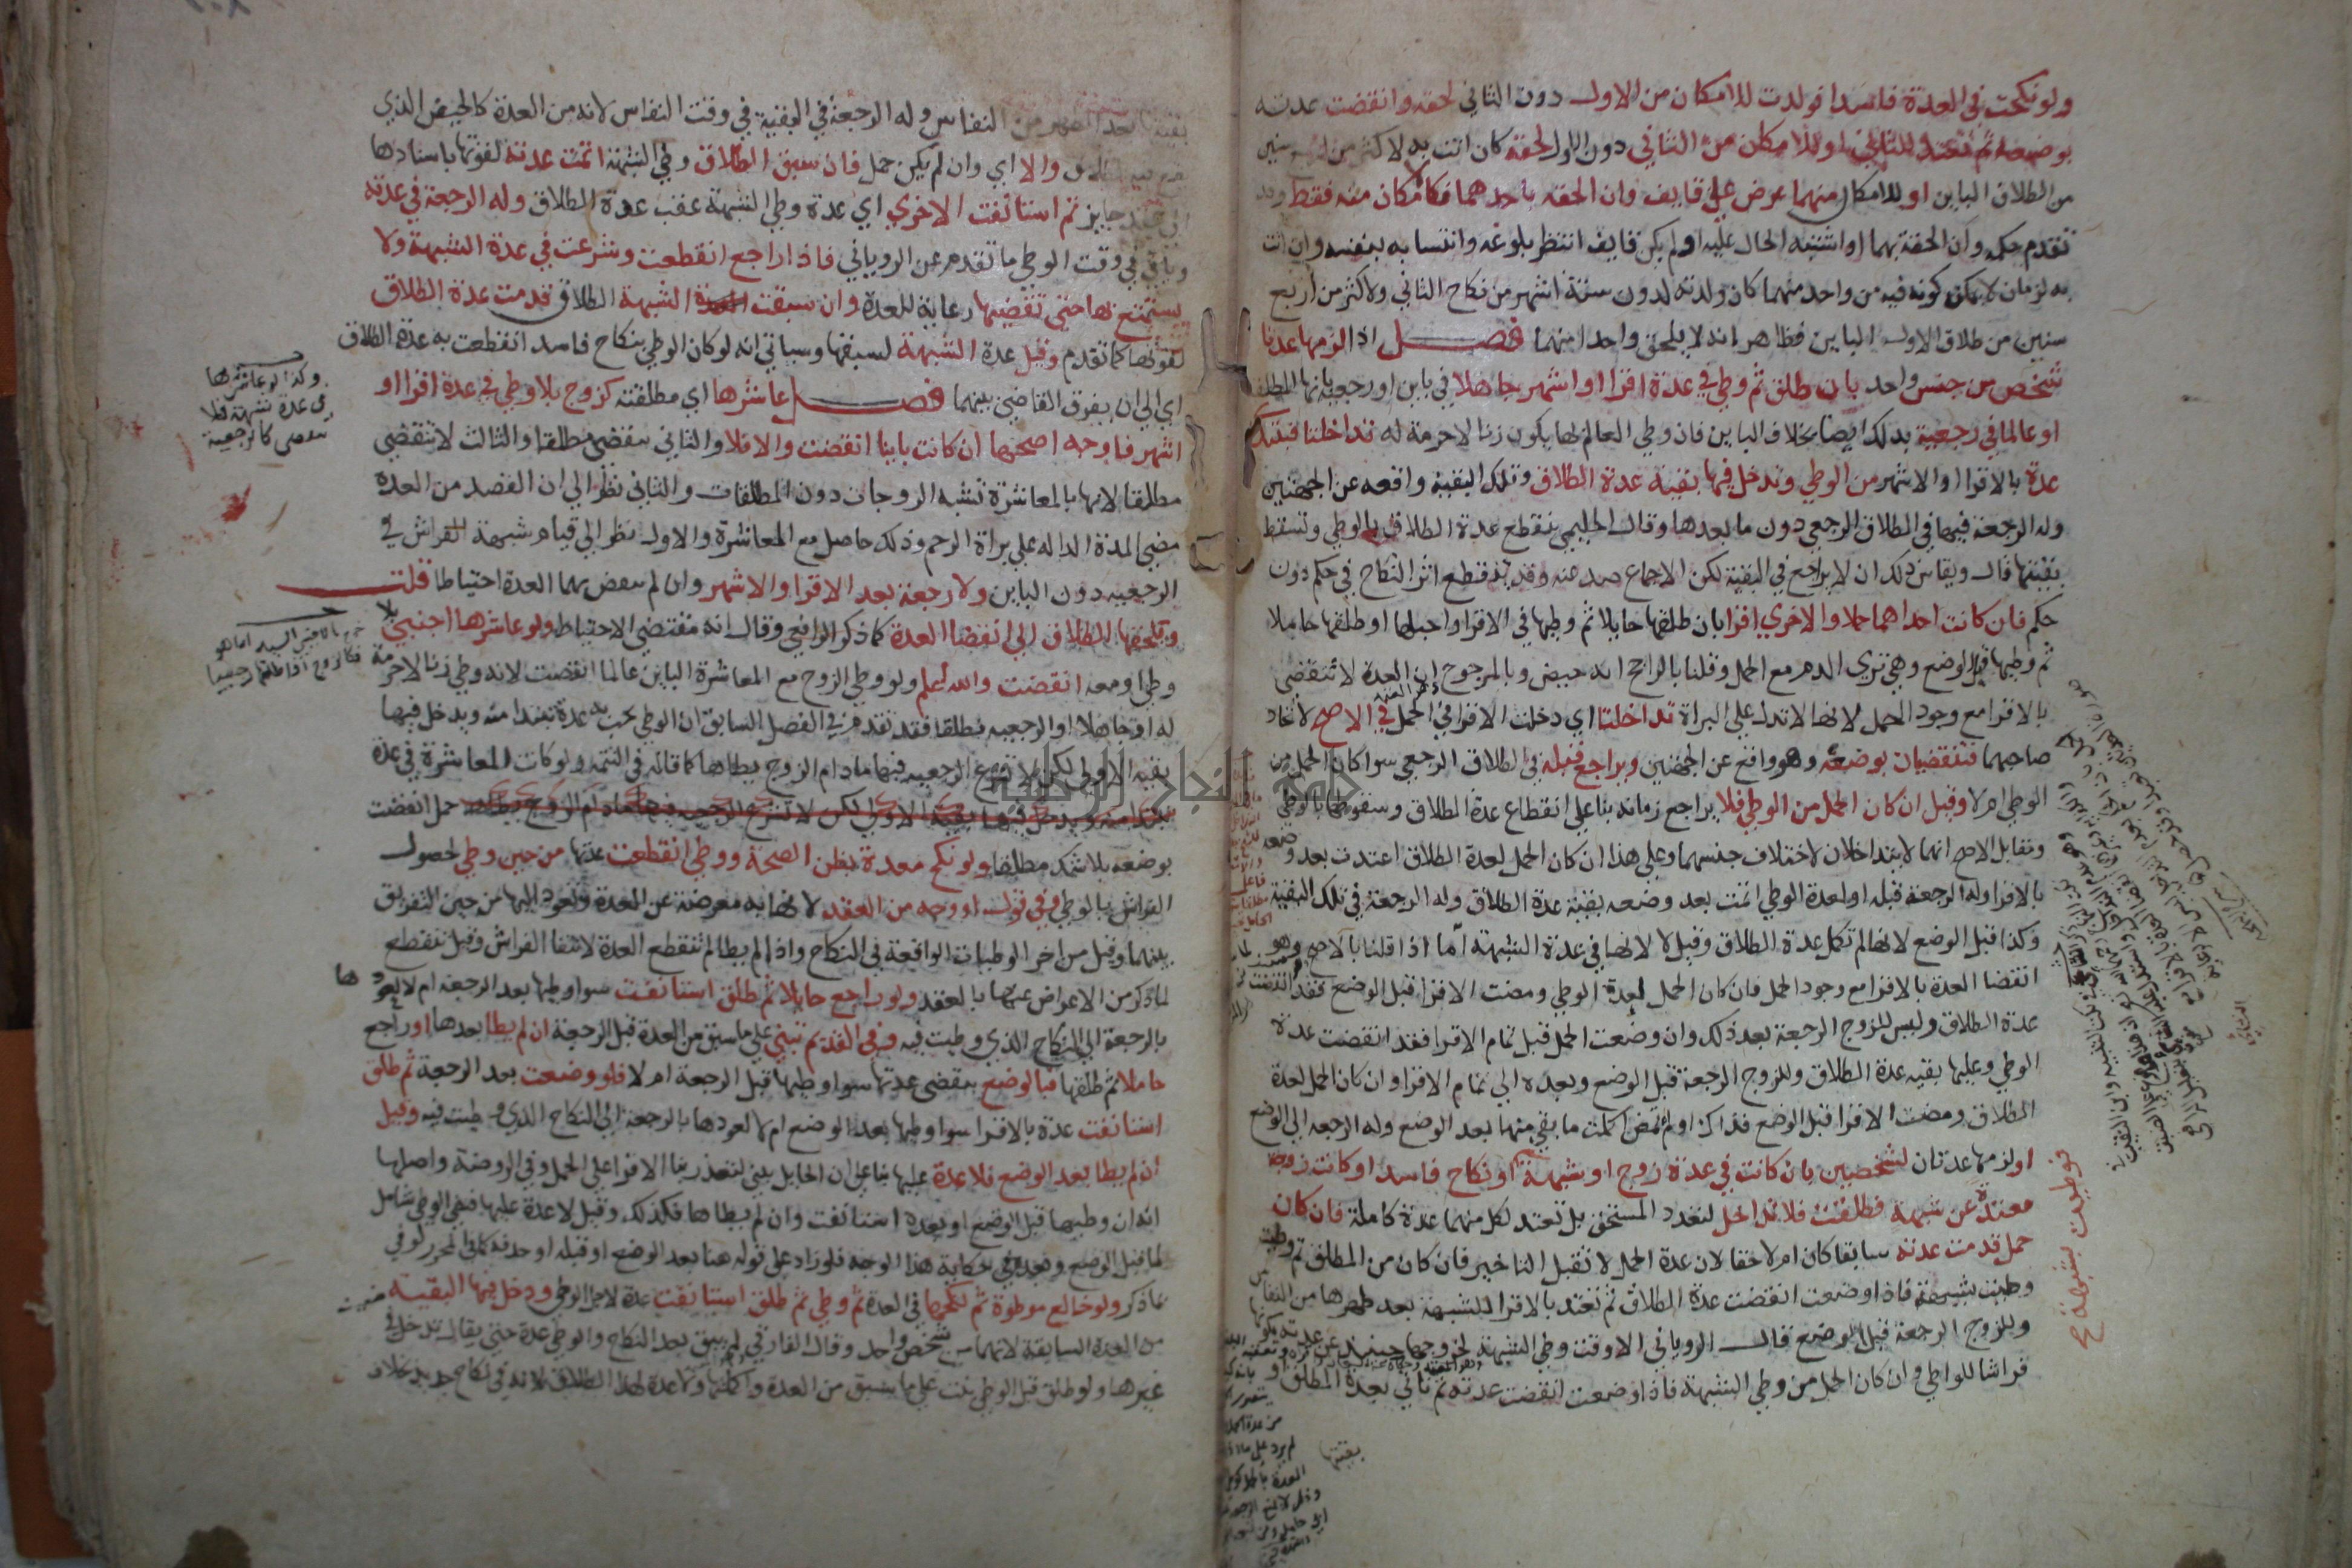 ولو نكحت في العدة فاسدا فولدت للامكان من الاول دون الثاني لحقه وانقضت عدته
بوضعه ثم تعتد للثاني او للامكان من الثاني دون الاول لحقه كان اتت به لاكثر من اربع سنين
من الطلاق الباين او للامكان منهما عرض على قايف فان الحقه باحدهما فكالامكان منه فقط وقد
تقدم حكمه وان الحقه بهما او اشتبه الحال عليه او لم يكن قايف انتظر بلوغه وانتسابه بنفسه وان اتت
به لزمان لا يمكن كونه فيه من واحد منهما كان ولدته لدون ستة اشهر من نكاح الثاني ولاكثر من اربع
سنين من طلاق الاول الباين فظاهر انه لا يلحق واحدا منهما فصل اذا لزمها عدتا
شخص من جنس واحد بان طلق ثم وطي في عدة اقرا او اشهر جاهلا في باين او رجعية بانها المطلقة
او عالما في رجعية بذلك ايضا بخلاف الباين فان وطي العالم لها يكون زنا لا حرمة له تداخلتا فتبتدي
عدة بالاقرا او الاشهر من الوطي وتدخل فيها بقية عدة الطلاق وتلك البقية واقعه عن الجهتين
وله الرجعة فيها في الطلاق الرجعي دون ما بعدها وقال الحليمي ينقطع عدة الطلاق بالوطي وتسقط
بقيتها قال وبقاس ذلك ان لا يراجع في البقية لكن الاجماع صد عنه وقد ينقطع اثر النكاح في حكم دون
حكم فان كانت احداهما حملا والاخرى اقرا بان طلقها حايلا ثم وطيها في الاقرا واحبلها او طلقها حاملا
ثم وطيها قبل الوضع وهي ترى الدم مع الحمل وقلنا بالراجح انه حيض وبالمرجوح ان العدة لا تنقضي
بالاقرا مع وجود الحمل لانها لا تدل على البراة تداخلتا اي دخلت الاقرا في الحمل في الاصح لاتحاد
صاحبهما فتنقضيان بوضعه وهو واقع عن الجهتين ويراجع قبله في الطلاق الرجعي سوا كان الحمل من
الوطي ام لا وقيل ان كان الحمل من الوطي فلا يراجع زمانه بنا على انقطاع عدة الطلاق وسقوطها بالوطي
ومقابل الاصح انهما لا يتداخلان لاختلاف جنسهما وعلى هذا ان كان الحمل لعدة الطلاق اعتدت بعد وضعه
بالاقرا وله الرجعة قبله او لعدة الوطي اتمت بعد وضعه بقية عدة الطلاق وله الرجعة في تلك البقية
وكذا قبل الوضع لانها لم تكمل عدة الطلاق وقيل لا لانها في عدة الشبهة اما اذا قلنا بالاصح وهو
انقضا العدة بالاقرا مع وجود الحمل فان كان الحمل لعدة الوطي ومضت الاقرا قبل الوضع فقد انقضت
عدة الطلاق وليس للزوج الرجعة بعد ذلك وان وضعت الحمل قبل تمام الاقرا فقد انقضت عدة
الوطي وعليها بقيه عدة الطلاق وللزوج الرجعة قبل الوضع وبعده الى تمام الاقرا وان كان الحمل لعدة
الطلاق ومضت الاقرا قبل الوضع فذاك او لم تمض اكملت ما بقي منها بعد الوضع وله الرجعه الى الوضع
او لزمها عدتان لشخصين بان كانت في عدة زوج او شبهة او نكاح فاسد او كانت زوجة
معتدة عن شبهة فطلقت فلا تداخل لتعدد المستحق بل تعتد لكل منهما عدة كاملة فان كان
حمل قدمت عدته سابقا كان ام لاحقا لان عدة الحمل لا تقبل التاخير فان كان من المطلق ثم وطيت
وطيت بشبهة فاذا وضعت انقضت عدة الطلاق ثم تعتد بالاقرا للشبهة بعد طهرها من النفاس
وللزوج الرجعة قبل الوضع قال الروياني الا وقت وطي الشبهة لخروجها حينئذ عن عدته وكونها
فراشا للواطي وان كان الحمل من وطي الشبهة فاذا وضعت انقضت عدته ثم تاتي بعدة المطلق او
بقيتها
فوطيت بشبهة صح
بقيتها بعد الطهر من النفاس وله الرجعة في البقية في وقت النفاس لانه من العدة كالحيض الذي
والا اي وان لم يكن حمل فان سبق الطلاق وطي الشبهة اتمت عدته لقوتها باستنادها
الى عقد جايز ثم استانفت الاخرى اي عدة وطي الشبهة عقب عدة الطلاق وله الرجعة في عدته
وياتي في وقت الوطي ما تقدم عن الروياني فاذا راجع انقطعت وشرعت في عدة الشبهة ولا
يستمتع بها حتى تقضيها رعاية للعدة وان سبقت الشبهة الطلاق قدمت عدة الطلاق
لقوتها كما تقدم وقيل عدة الشبهة لسبقها وسياتي انه لو كان الوطي بنكاح فاسد انقطعت به عدة الطلاق
اي الى ان يفرق القاضي بينهما فصل عاشرها اي مطلقته كزوج بلا وطي في عدة اقرا او
اشهر فاوجه اصحها ان كانت باينا انقضت والا فلا والثاني تنقضي مطلقا والثالث لا تنقضي
مطلقا لانها بالمعاشرة تشبه الزوجات دون المطلقات والثاني نظر الى ان القصد من العدة
مضي المدة الداله على براة الرحم وذلك حاصل مع المعاشرة والاول نظر الى قيام شبهة الفراش في
الرجعيه دون الباين ولا رجعة بعد الاقرا والاشهر وان لم تنقض بهما العدة احتياطا قلت
ويلحقها الطلاق الى انقضا العدة كما ذكر الرافعي وقال انه مقتضى الاحتياط ولو عاشرها اجنبي بلا
وطي او معه انقضت والله اعلم ولو وطي الزوج مع المعاشرة الباين عالما انقضت لانه وطي زنا لا حرمة
له او جاهلا او الرجعيه مطلقا فقد تقدم في الفصل السابق ان الوطي يجب به عدة تبتدا منه ويدخل فيها
بقيه الاولى لكن لا تشرع الرجعيه فيها مادام الزوج يطاها كما قاله في التتمه ولو كانت المعاشرة في عدة
حمل انقضت
بوضعه بلا شك مطلقا ولو نكح معتدة بظن الصحة ووطي انقطعت عدتها من حين وطي لحصول
الفراش بالوطي وفي قول او وجه من العقد لانها به معرضة عن العدة وتعود اليها من حين التفريق
بينهما وقيل من اخر الوطيات الواقعة في النكاح واذا لم يطا لم تنقطع العدة لانتفا الفراش وقيل تنقطع
لما ذكر من الاعراض عنها بالعقد ولو راجع حايلا ثم طلق استانفت سوا وطيها بعد الرجعة ام لا لعودها
بالرجعة الى النكاح الذي وطيت فيه وفي القديم تبني على ما سبق من العدة قبل الرجعة ان لم يطا بعدها او راجع
حاملا ثم طلقها فبالوضع تنقضي عدتها سوا وطيها قبل الرجعة ام لا فلو وضعت بعد الرجعة ثم طلق
استانفت عدة بالاقرا سوا وطيها بعد الوضع ام لا لعودها بالرجعة الى النكاح الذي وطيت فيه وقيل
ان لم يطا بعد الوضع فلا عدة عليها بنا على ان الحايل تبني لتعذر بنا الاقرا على الحمل وفي الروضة واصلها
انه ان وطيها قبل الوضع او بعده استانفت وان لم يطاها فكذلك وقيل لا عدة عليها فنفي الوطي شامل
لما قبل الوضع وبعده في حكاية هذا الوجه فلو زاد على قوله هنا بعد الوضع او قبله او حذفه كما في المحرر لوفى
بما ذكر ولو خالع موطوة ثم نكحها في العدة ثم وطي ثم طلق استانفت عدة لاجل الوطي ودخل فيها البقية
من العدة السابقة لانهما من شخص واحد وقال الفارقي لم يبق بعد النكاح والوطي عدة حتى يقال تدخل في
غيرها ولو طلق قبل الوطي بنت على ما سبق من العدة واكملتها ولا عدة لهذا الطلاق لانه في نكاح جديد بخلاف
وكذا لو عاشرها
في عدة شبهة فلا
تنقضي كالرجعية